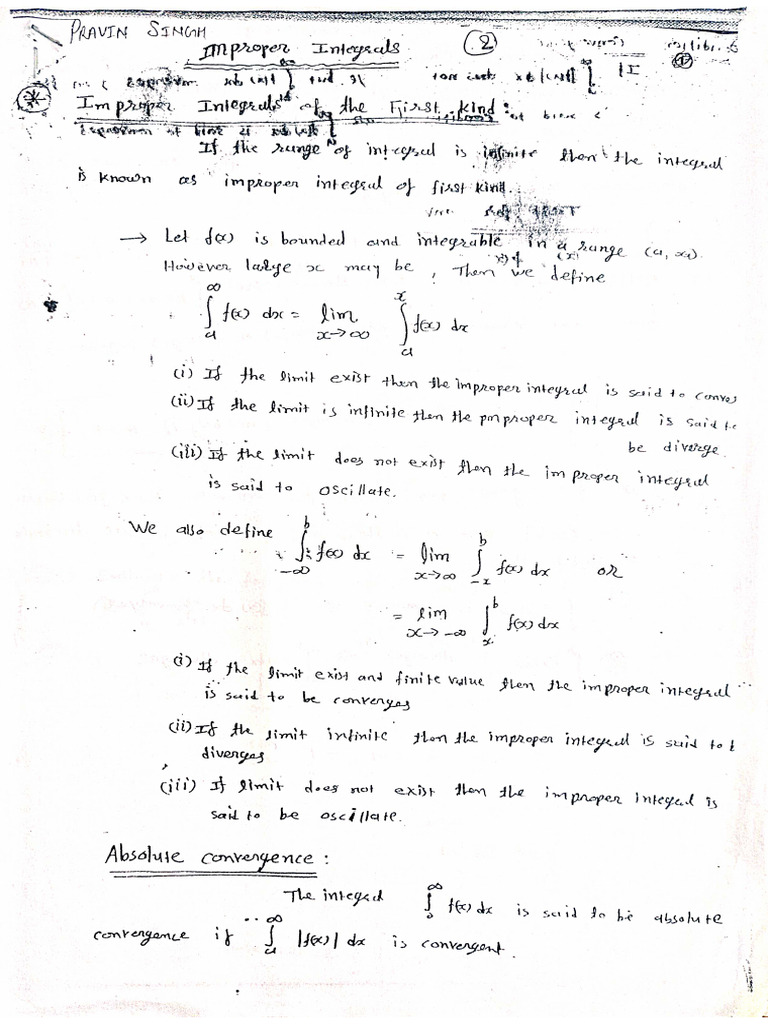 PRAVIN SINGH
Improper Integrals (2)
Improper Integrals of the First Kind:
If the range of integral is infinite then the integral
is known as improper integral of first kind.
→ Let f(x) is bounded and integrable in a range (a, ∞).
However large x may be, Then we define
∫_a^∞ f(x) dx = lim_{x→∞} ∫_a^x f(x) dx
(i) If the limit exist then the improper integral is said to conver
(ii) If the limit is infinite then the improper integral is said to
be diverge.
(iii) If the limit does not exist then the improper integral
is said to oscillate.
We also define ∫_{-∞}^b f(x) dx = lim_{x→∞} ∫_{-x}^b f(x) dx or
= lim_{x→-∞} ∫_x^b f(x) dx
(i) If the limit exist and finite value then the improper integral
is said to be converges
(ii) If the limit infinite then the improper integral is said to b
diverges
(iii) If limit does not exist then the improper integral is
said to be oscillate.
Absolute convergence:
The integral ∫^∞ f(x) dx is said to be absolute
convergence if ∫_a^∞ |f(x)| dx is convergent.